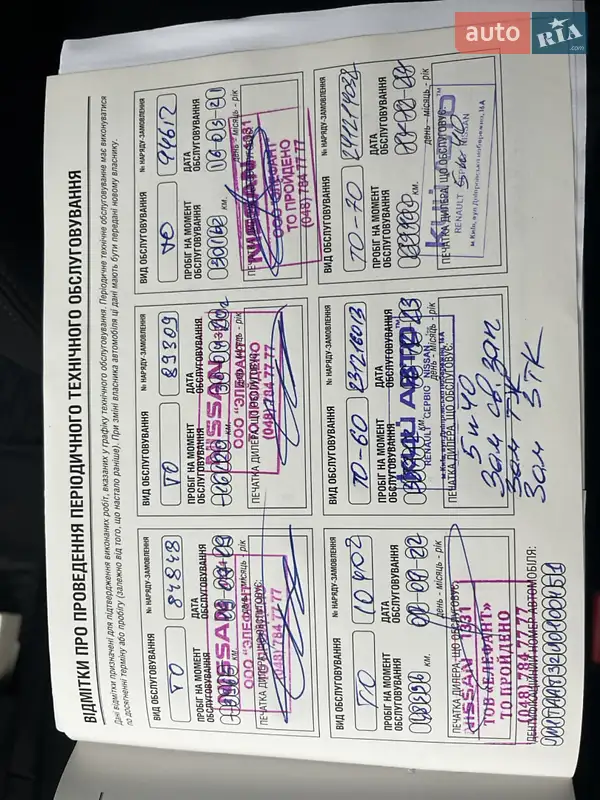 auto RIA.com
ВІДМІТКИ ПРО ПРОВЕДЕННЯ ПЕРІОДИЧНОГО ТЕХНІЧНОГО ОБСЛУГОВУВАННЯ
Дані відмітки призначені для підтвердження виконаних робіт, вказаних у графіку технічного обслуговування. Періодичне технічне обслуговування має виконуватися
по досягненні терміну або пробігу (залежно від того, що настало раніше). При зміні власника автомобіля ці дані мають бути передані новому власнику.
ВИД ОБСЛУГОВУВАННЯ
ТО
№ НАРЯДУ-ЗАМОВЛЕННЯ
84848
ПРОБІГ НА МОМЕНТ ОБСЛУГОВУВАННЯ
км.
ДАТА ОБСЛУГОВУВАННЯ
день - місяць - рік
ПЕЧАТКА ДИЛЕРА, ЩО ОБСЛУГОВУЄ:
NISSAN
ООО "ЭЛЕФАНТ"
(048) 784 77 77
ВИД ОБСЛУГОВУВАННЯ
ТО
№ НАРЯДУ-ЗАМОВЛЕННЯ
89309
ПРОБІГ НА МОМЕНТ ОБСЛУГОВУВАННЯ
км.
ДАТА ОБСЛУГОВУВАННЯ
день - місяць - рік
ПЕЧАТКА ДИЛЕРА, ЩО ОБСЛУГОВУЄ:
NISSAN
ООО "ЭЛЕФАНТ"
ТО ПРОЙДЕНО
(048) 784 77 77
ВИД ОБСЛУГОВУВАННЯ
ТО
№ НАРЯДУ-ЗАМОВЛЕННЯ
94612
ПРОБІГ НА МОМЕНТ ОБСЛУГОВУВАННЯ
30142 км.
ДАТА ОБСЛУГОВУВАННЯ
16 03 21
день - місяць - рік
NISSAN 1931
ООО "ЭЛЕФАНТ"
ТО ПРОЙДЕНО
(048) 784 77 77
ВИД ОБСЛУГОВУВАННЯ
ТО
№ НАРЯДУ-ЗАМОВЛЕННЯ
10402
ПРОБІГ НА МОМЕНТ ОБСЛУГОВУВАННЯ
км.
ДАТА ОБСЛУГОВУВАННЯ
день - місяць - рік
ПЕЧАТКА ДИЛЕРА, ЩО ОБСЛУГОВУЄ:
NISSAN 1931
ТОВ «ЕЛЕФАНТ»
ТО ПРОЙДЕНО
(048) 784 77 77
ВИД ОБСЛУГОВУВАННЯ
ТО-60
№ НАРЯДУ-ЗАМОВЛЕННЯ
ПРОБІГ НА МОМЕНТ ОБСЛУГОВУВАННЯ
ДАТА ОБСЛУГОВУВАННЯ
день - місяць - рік
ПЕЧАТКА ДИЛЕРА, ЩО ОБСЛУГОВУЄ:
КИЙ АВТО™
RENAULT СЕРВІС NISSAN
5w40
Зам св, зап
Зам ТК
Зам ЗТК
ВИД ОБСЛУГОВУВАННЯ
ТО-70
№ НАРЯДУ-ЗАМОВЛЕННЯ
ПРОБІГ НА МОМЕНТ ОБСЛУГОВУВАННЯ
км.
ДАТА ОБСЛУГОВУВАННЯ
день - місяць - рік
ПЕЧАТКА ДИЛЕРА, ЩО ОБСЛУГОВУЄ:
RENAULT NISSAN
5w40
м.Київ, вул.Дніпровська набережна, 16А
ІДЕНТИФІКАЦІЙНИЙ НОМЕР АВТОМОБІЛЯ: